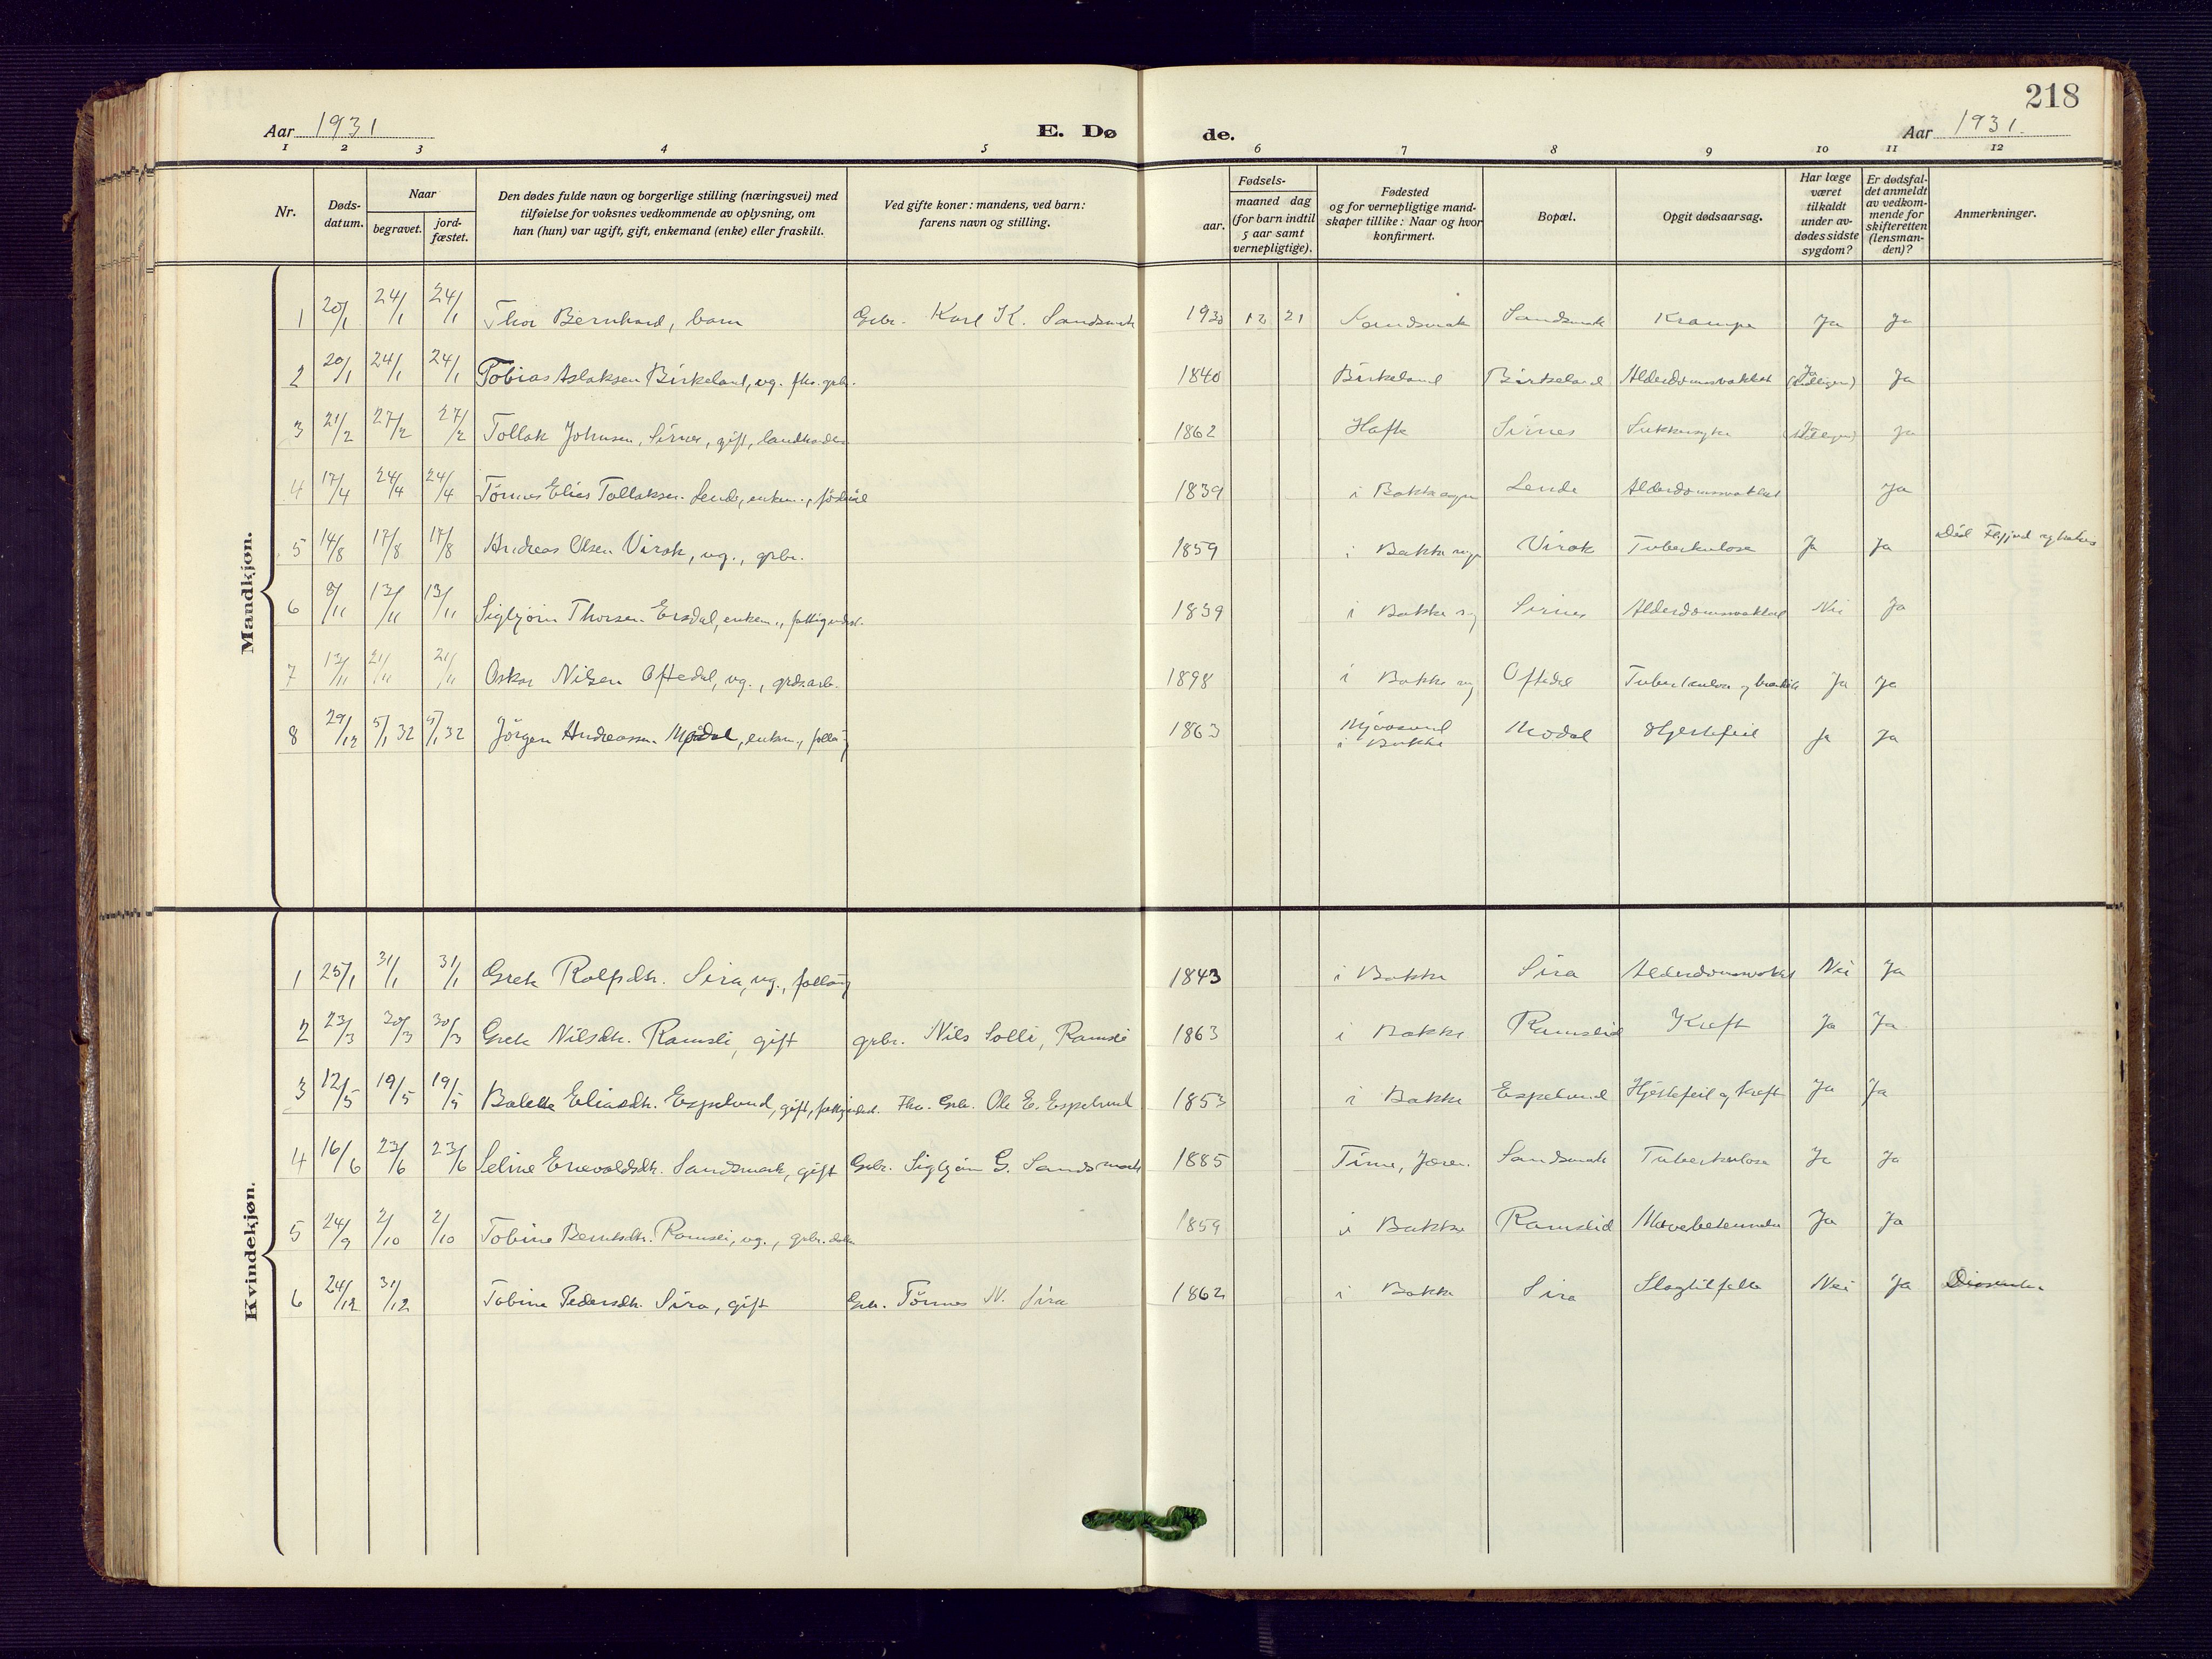 218
Aar 1931 E. Dø de. Aar 1931.
1 2 3 4 5 6 7 8 9 10 11 12
Nr.
Døds-
datum.
Naar
begravet.
jord-
fæstet.
Den dødes fulde navn og borgerlige stilling (næringsvei) med
tilføielse for voksnes vedkommende av oplysning, om
han (hun) var ugift, gift, enkemand (enke) eller fraskilt.
Ved gifte koner: mandens, ved barn:
farens navn og stilling.
Fødsels-
aar.
maaned dag
(for barn indtil
5 aar samt
vernepligtige).
Fødested
og for vernepligtige mand-
skaper tillike: Naar og hvor
konfirmert.
Bopæl.
Opgit dødsaarsag.
Har læge
været
tilkaldt
under av-
dødes sidste
sygdom?
Er dødsfal-
det anmeldt
av vedkom-
mende for
skifteretten
(lensman-
den)?
Anmerkninger.
Mandkjøn.
1 20/1 24/1 24/1 Thor Bernhard, barn Gbr. Karl K. Sandsmark 1930 12 21 Sandsmark Sandsmark Krampe Ja Ja
2 20/1 24/1 24/1 Tobias Aslaksen Birkeland, ug. fhv. gbr. 1840 Birkeland Birkeland Alderdomssvakhet Ja Ja
3 21/2 27/2 27/2 Tollak Johnsen, Sirnes, gift, 1862 Sirnes Sukkersyke Ja
4 17/4 24/4 24/4 Tönnes Elias Tollaksen Lende, enkem., 1839 i Bakke sogn Lende Alderdomssvakhet Ja
5 14/8 17/8 17/8 Andreas Olsen Virak, ug., gbr. 1859 i Bakke sogn Virak Tuberkulose Ja Ja Död
6 8/11 13/11 13/11 Sigbjörn Thorsen Ersdal, enkem., 1839 i Bakke sg Sirnes Alderdomssvakhet Nei Ja
7 13/11 21/11 21/11 Oskar Nilsen Oftedal, ug., grdsarb. 1898 i Bakke sg Oftedal Tuberkulose og Ja Ja
8 29/12 5/1 32 5/1 32 Jörgen Andreassen Modal, enkem., 1863
i Bakke Modal Hjertefeil Ja Ja
Kvindekjøn.
1 25/1 31/1 31/1 Grete Rolfsdtr. Sira, ug., 1843 i Bakke Sira Alderdomssvakhet Nei Ja
2 23/3 30/3 30/3 Grete Nilsdtr. Ramsli, gift gbr. Nils Solli, Ramsli 1863 i Bakke Ramslid Kreft Ja Ja
3 12/5 19/5 19/5 Balette Eliasdtr. Espelund, gift, Fhv. Gbr. Ole E. Espelund 1853 i Bakke Espelund Hjertefeil og kreft Ja Ja
4 16/6 23/6 23/6 Seline Enevoldsdtr. Sandsmark, gift Gbr. Sigbjörn G. Sandsmark 1885 Time, Jæren. Sandsmark Tuberkulose Ja Ja
5 24/9 2/10 2/10 Tobine Berntsdtr. Ramsli, ug., gbr. 1859 i Bakke Ramslid Mavebetennelse Ja Ja
6 24/12 31/12 Tobine Pedersdtr. Sira, gift Gbr. Tönnes N. Sira 1862 i Bakke Sira Slagtilfelle Nei Ja